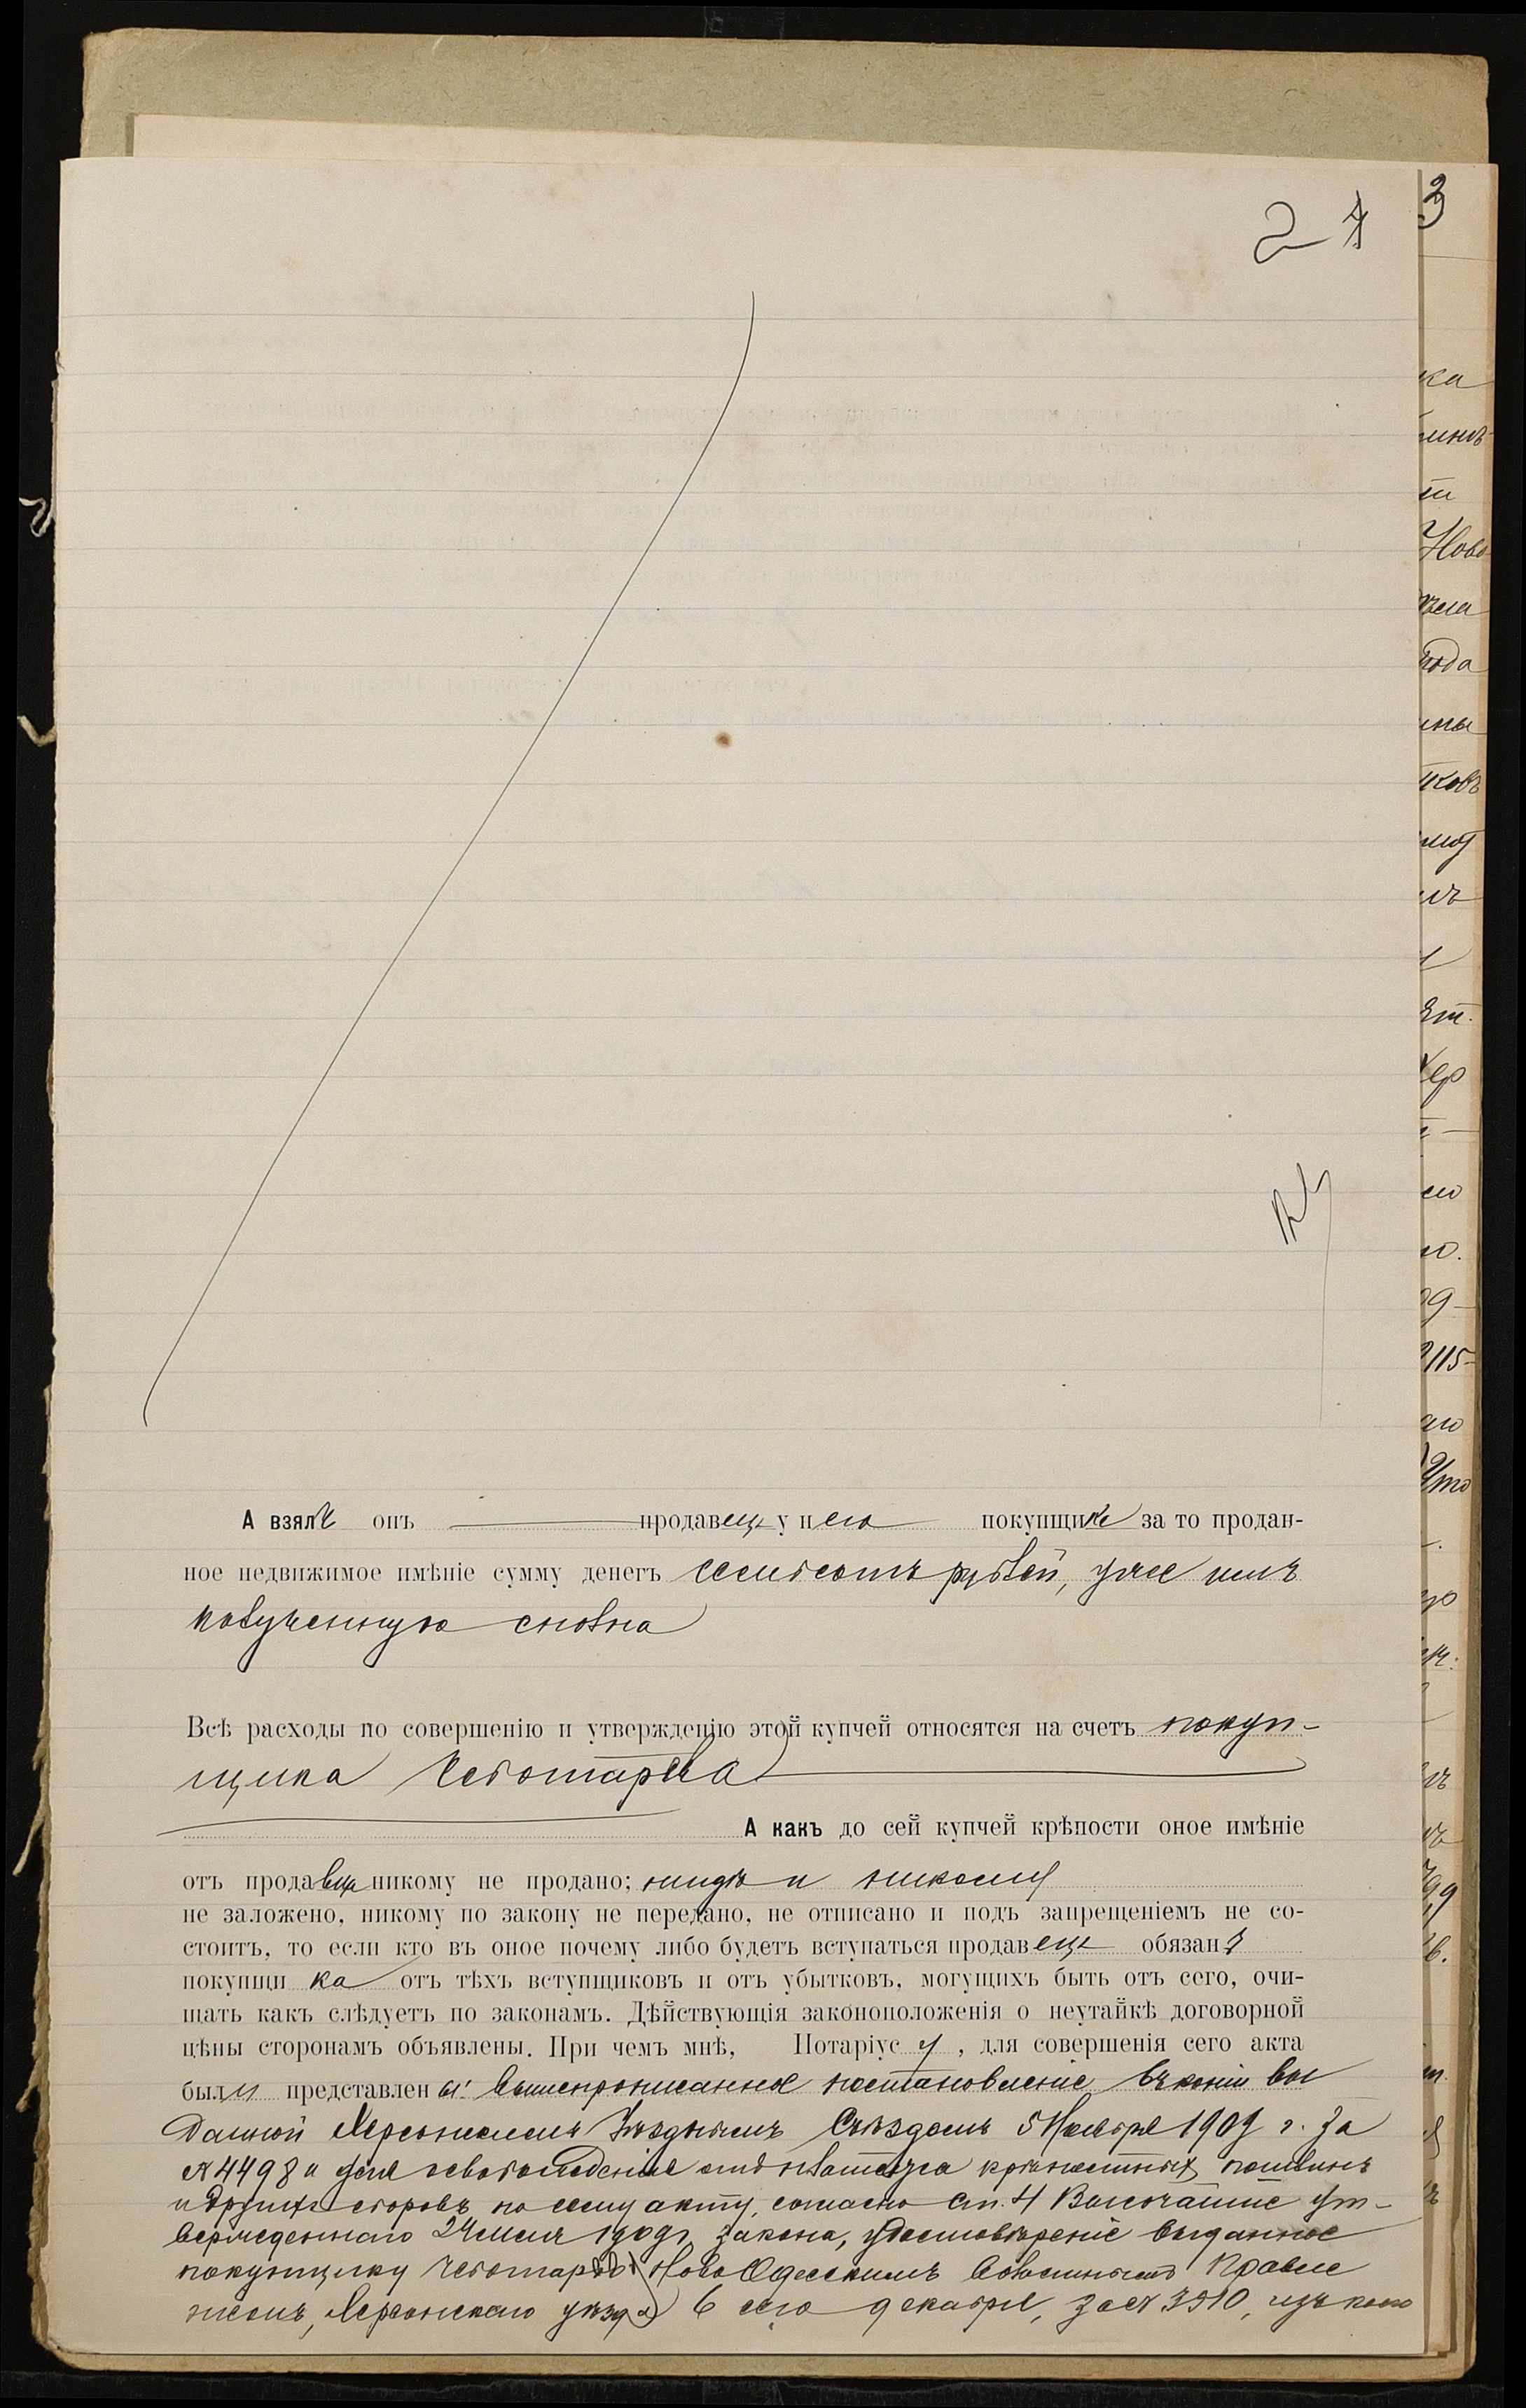 2
3
А взялъ онъ продавецъ у него покупщика за то продан-
ное недвижимое имѣніе сумму денегъ семьсотъ рублей, уже имъ
полученную сполна
Всѣ расходы по совершенію и утвержденію этой купчей относятся на счетъ покуп-
щика Чеботарева
А какъ до сей купчей крѣпости оное имѣніе
отъ продавца никому не продано; нигдѣ и никому
не заложено, никому по закону не передано, не отписано и подъ запрещеніемъ не со-
стоитъ, то если кто въ оное почему либо будетъ вступаться продавецъ обязанъ
покупщика отъ тѣхъ вступщиковъ и отъ убытковъ, могущихъ быть отъ сего, очи-
щать какъ слѣдуетъ по законамъ. Дѣйствующія законоположенія о неутайкѣ договорной
цѣны сторонамъ объявлены. При чемъ мнѣ, Нотаріусу, для совершенія сего акта
были представлены: вышепрописанное постановленіе въ копіи вы
данной Херсонскимъ Уѣзднымъ Съѣздомъ 5 Ноября 1909 г. за
№ 4498 и для освобожденія отъ платежа крѣпостныхъ пошлинъ
и другихъ сборовъ по сему акту, согласно ст. 4 Высочайше ут-
вержденнаго закона, удостовѣреніе выданное
покупщику Чеботареву Ново Одесскимъ Волостнымъ Правле
ніемъ, Херсонскаго уѣзда 6 сего декабря, за № 3510, изъ коего